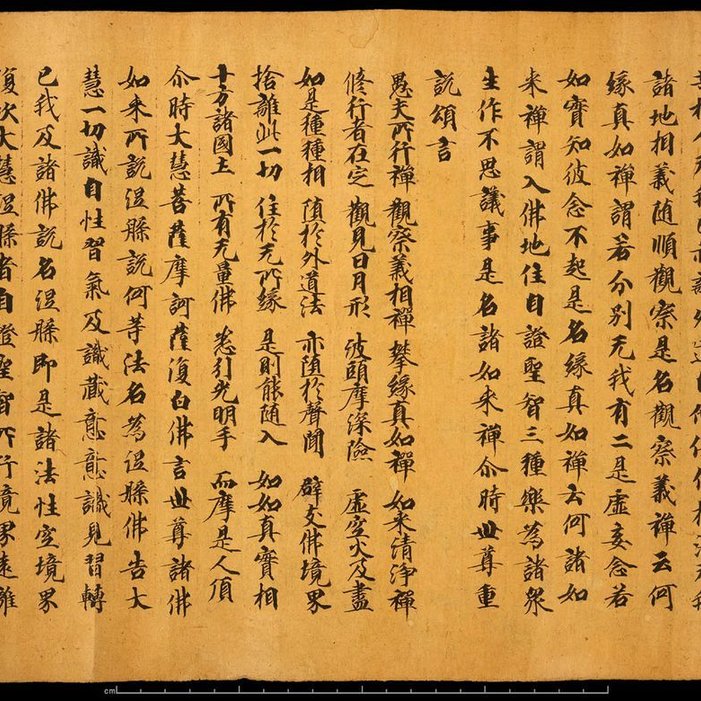 諸地相義随順觀察是名觀察義禪云何
緣真如禪謂若分別无我有二是虛妄念若
如實知彼念不起是名緣真如禪云何諸如
来禪謂入佛地住自證聖智三種樂為諸衆
生作不思議事是名諸如来禪尒時世尊重
説頌言
愚夫所行禪 觀察義相禪 攀緣真如禪 如来清淨禪
修行者在定 觀見日月形 波頭摩深險 虛空火及盡
如是種種相 墮於外道法 亦墮於聲聞 辟支佛境界
捨離此一切 住於无所緣 是則能随入 如如真實相
十方諸國土 所有无量佛 悉引光明手 而摩是人頂
尒時大慧菩薩摩訶薩復白佛言世尊諸佛
如来所説涅槃説何等法名為涅槃佛告大
慧一切識自性習氣及識藏意意識見習轉
已我及諸佛説名涅槃即是諸法性空境界
復次大慧涅槃者自證聖智所行境界遠離
cm